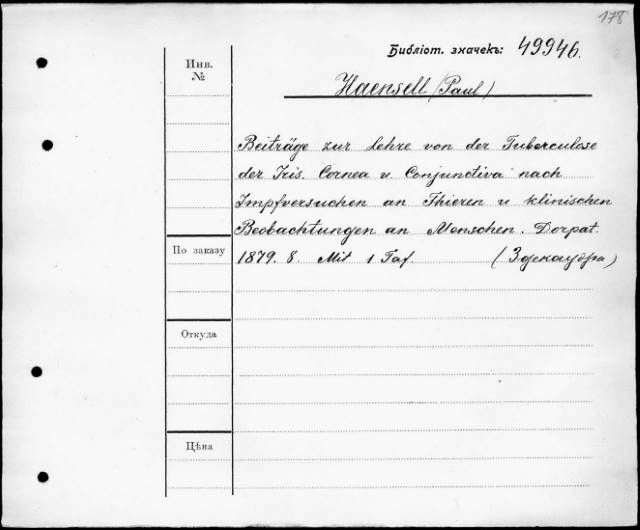 178
Библіот. значекъ: 49946.
Инв.
№
Haensell (Paul)
Beiträge zur Lehre von der Tuberculose
der Iris. Cornea u Conjunctiva nach
Impfversuchen an Thieren u klinischen
Beobachtungen an Menschen. Dorpat.
По заказу
1879. 8. Mit 1 Taf.
Откуда
Цѣна